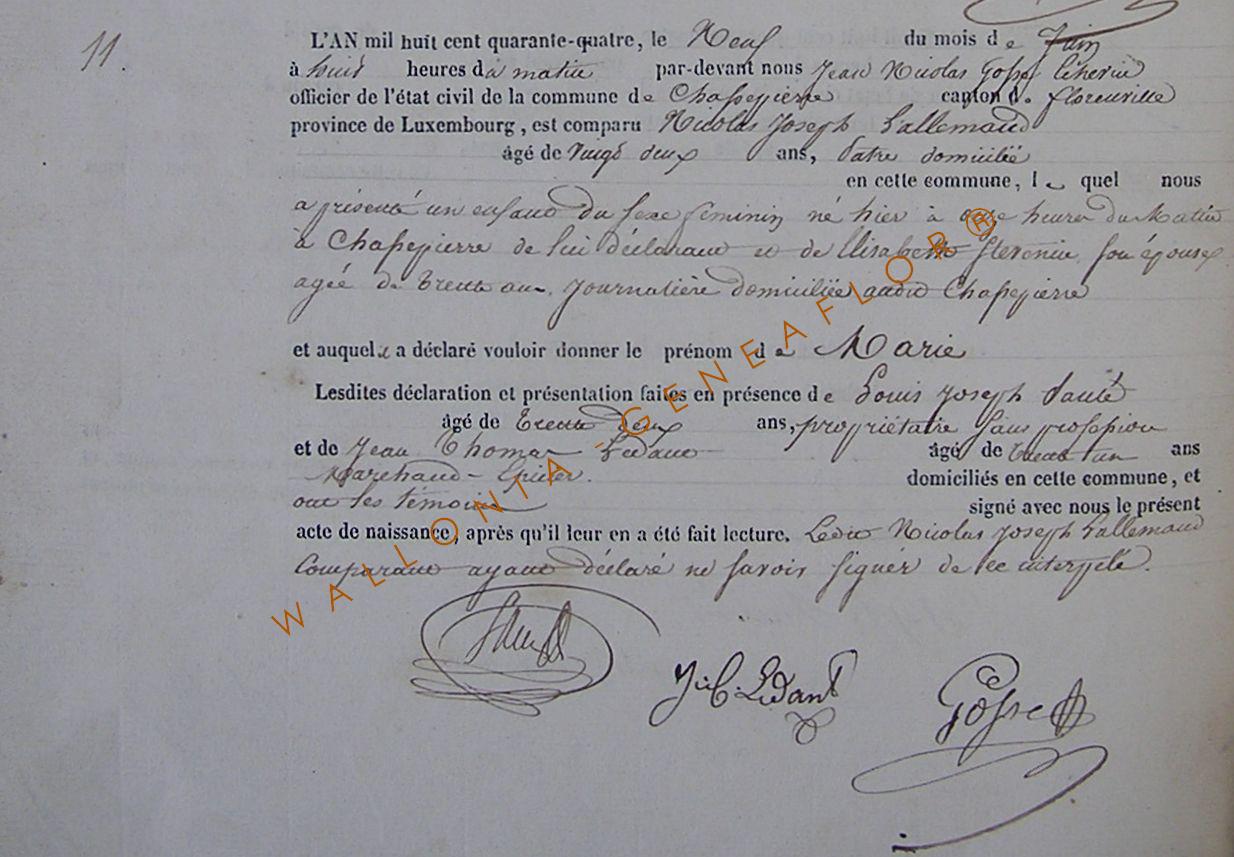 11.
L'AN mil huit cent quarante-quatre, le Neuf du mois de Juin
à huit heures du matin par-devant nous Jean Nicolas Gosset
officier de l'état civil de la commune de Chassepierre canton de florenville
province de Luxembourg, est comparu Nicolas Joseph Lallemand
âgé de vingt deux ans, domicilié
en cette commune, le quel nous
a présenté un enfant du sexe feminin né hier à onze heures du Matin
a Chassepierre de lui déclarant et de Elisabeth son épouse
agée de trente ans Journalière domiciliée audit Chassepierre
et auquel a déclaré vouloir donner le prénom de Marie
Lesdites déclaration et présentation faites en présence de Louis Joseph
âgé de trente deux ans, propriétaire sans profession
et de Jean Thomas Ledant âgé de trente un ans
Marchand - Epicier. domiciliés en cette commune, et
ont les témoins signé avec nous le présent
acte de naissance, après qu'il leur en a été fait lecture. Ledit Nicolas Joseph Lallemand
Comparant ayant déclaré ne savoir signer de ce interpelé.
Ledant Gosset
WALLONIA - GENEAFLOR ®